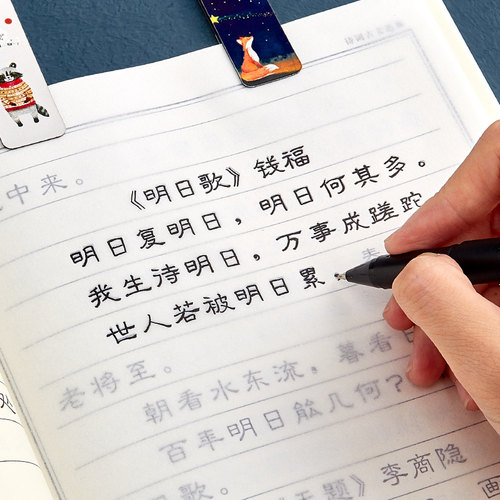 中来。
《明日歌》钱福
明日复明日，明日何其多。
我生诗明日，万事成蹉跎
世人若被明日累，春
老将至。
朝看水东流，暮看日
百年明日能几何？
歌。
题》李商隐